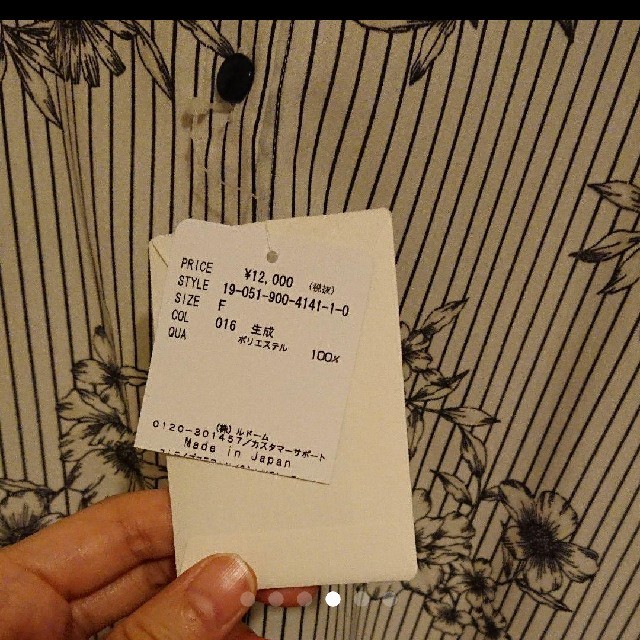 PRICE ¥12,000 (税抜)
STYLE 19-051-900-4141-1-0
SIZE F
COL 016 生成
QUA ポリエステル 100%
(株)ルドーム
0120-301457/カスタマーサポート
Made in Japan